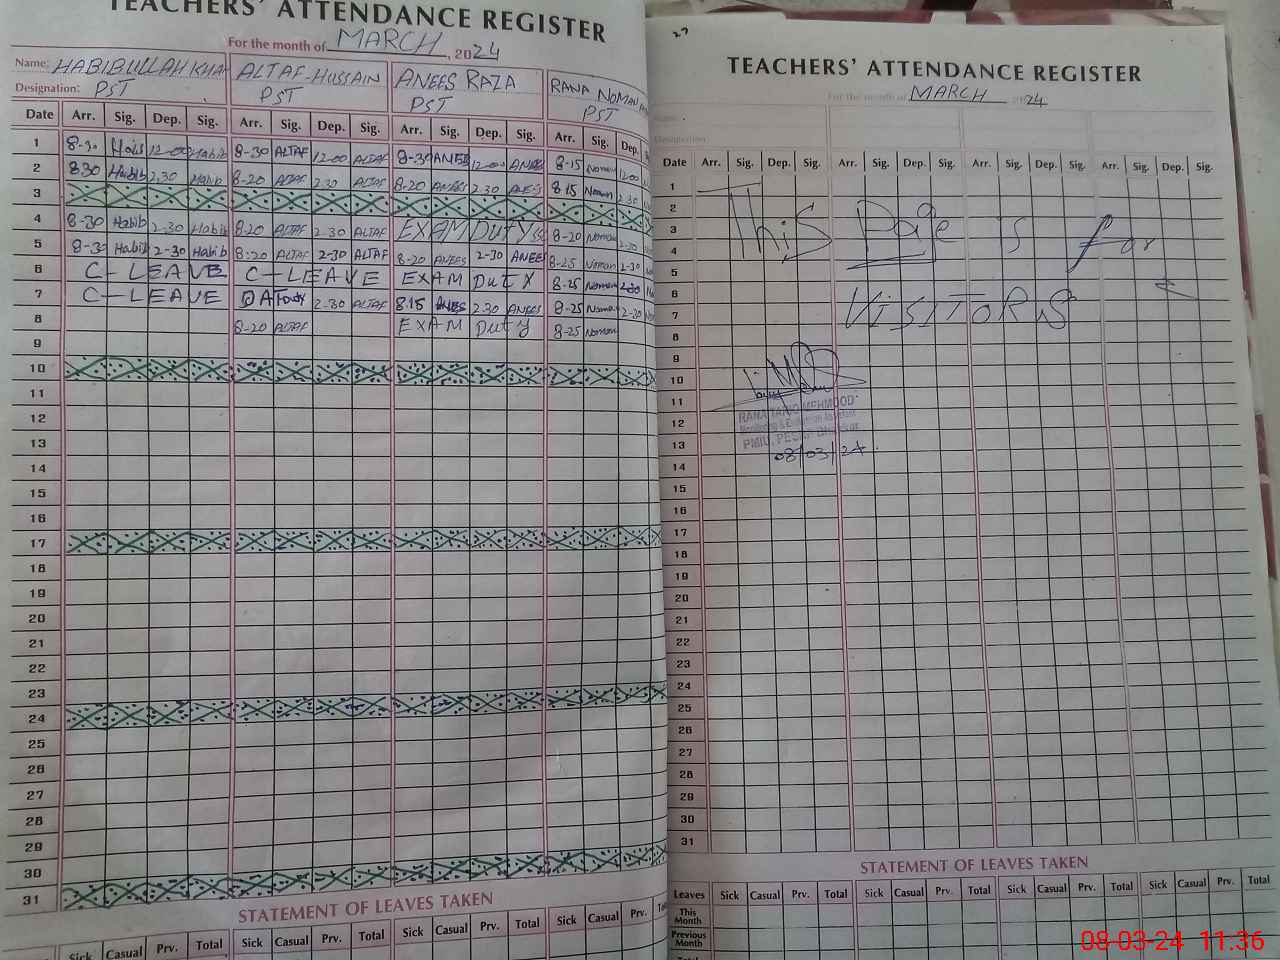 TEACHERS' ATTENDANCE REGISTER
For the month of MARCH, 2024
Name: HABIBULLAH KHA ALTAF-HUSSAIN ANEES RAZA RANA NOMAN
Designation: PST PST PST PST
Date Arr. Sig. Dep. Sig. Arr. Sig. Dep. Sig. Arr. Sig. Dep. Sig. Arr. Sig. Dep.
1 8-30 Habib 12-00 Habib 8-30 ALTAF 12-00 ALTAF 8-30 ANEES 12-00 ANEES 8-15 Noman 12-00
2 8.30 Habib 2,30 Habib 8-20 ALTAF 2-30 ALTAF 8-20 ANEES 2-30 ANEES 8-15 Noman 2-30
3
4 8-30 Habib 2-30 Habib 8-20 ALTAF 2-30 ALTAF EXAM Duty 8-20 Noman 2-30
5 8-30 Habib 2-30 Habib 8-20 ALTAF 2-30 ALTAF 8-20 ANEES 2-30 ANEES 8-25 Noman 2-30
6 C-LEAVE C-LEAVE EXAM Duty 8-25 Noman 2-30
7 C-LEAVE ALTAF 2-30 ALTAF 8.15 ANEES 2.30 ANEES 8-25 Noman 2-20
8 8-20 ALTAF EXAM Duty 8-25 Noman
9
10
11
12
13
14
15
16
17
18
19
20
21
22
23
24
25
26
27
28
29
30
31
STATEMENT OF LEAVES TAKEN
Sick Casual Prv. Total Sick Casual Prv. Total Sick Casual Prv. Total Sick Casual Prv.
27
TEACHERS' ATTENDANCE REGISTER
For the month of MARCH 2024
Name:
Designation:
Date Arr. Sig. Dep. Sig. Arr. Sig. Dep. Sig. Arr. Sig. Dep. Sig. Arr. Sig. Dep. Sig.
1
2
3 This Page is for
4
5
6
7 VISITORS
8
9
10
11
RANA TARIQ MEHMOOD
12
Monitoring & Evaluation Assistant
13
PMIU, PESRP
08/03/24.
14
15
16
17
18
19
20
21
22
23
24
25
26
27
28
29
30
31
STATEMENT OF LEAVES TAKEN
Leaves Sick Casual Prv. Total Sick Casual Prv. Total Sick Casual Prv. Total Sick Casual Prv. Total
This Month
Previous Month
Total
08-03-24 11:36